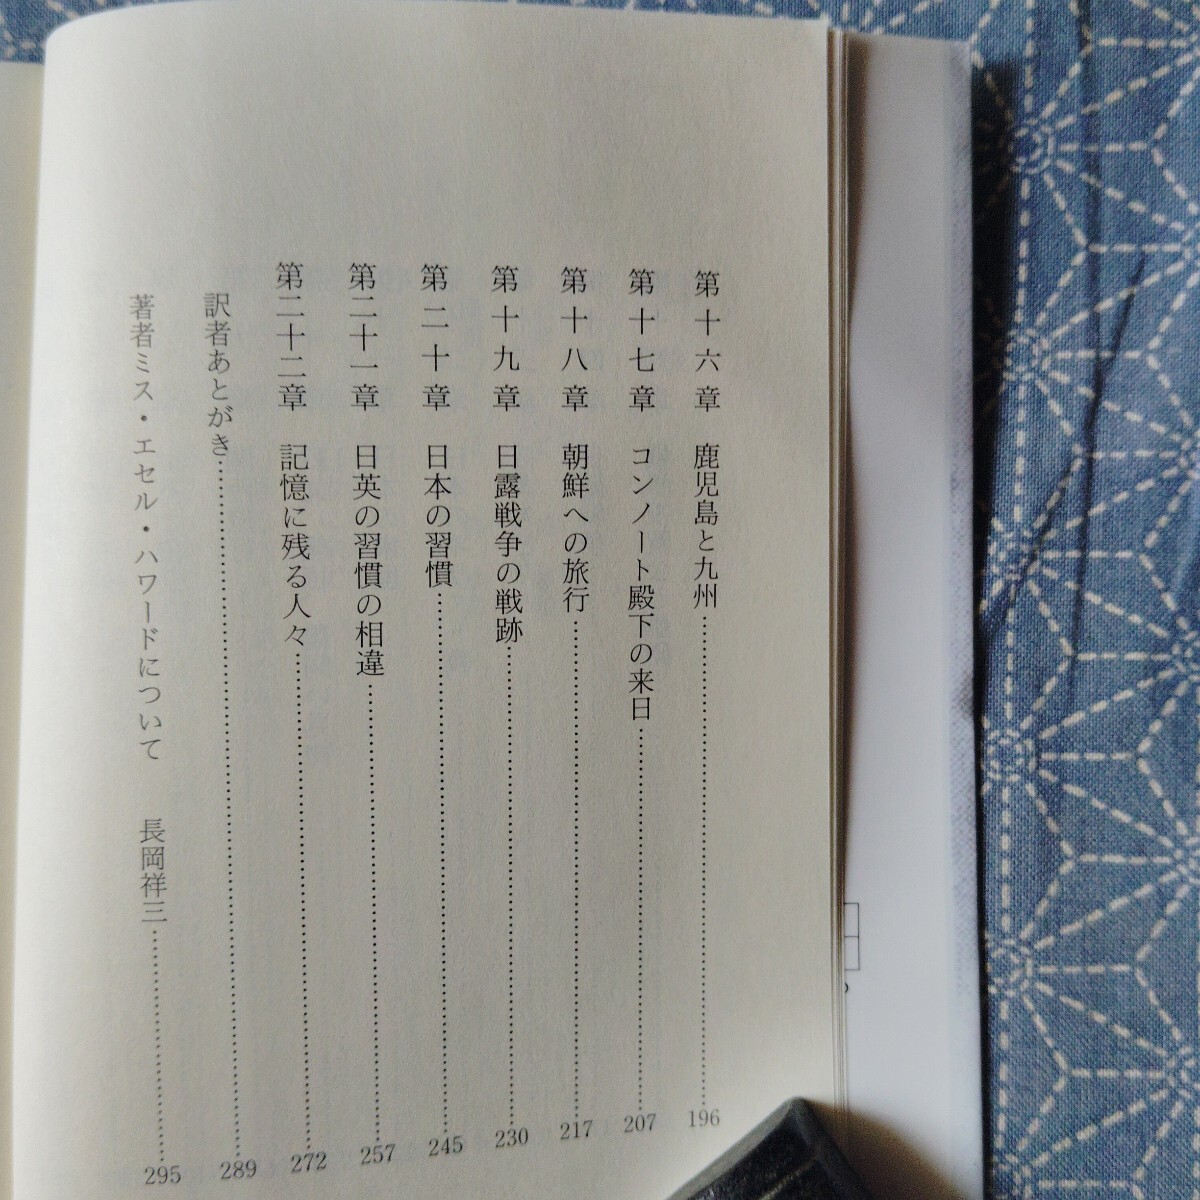 第十六章 鹿児島と九州……196
第十七章 コンノート殿下の来日……207
第十八章 朝鮮への旅行……217
第十九章 日露戦争の戦跡……230
第二十章 日本の習慣……245
第二十一章 日英の習慣の相違……257
第二十二章 記憶に残る人々……272
訳者あとがき……289
著者ミス・エセル・ハワードについて 長岡祥三……295